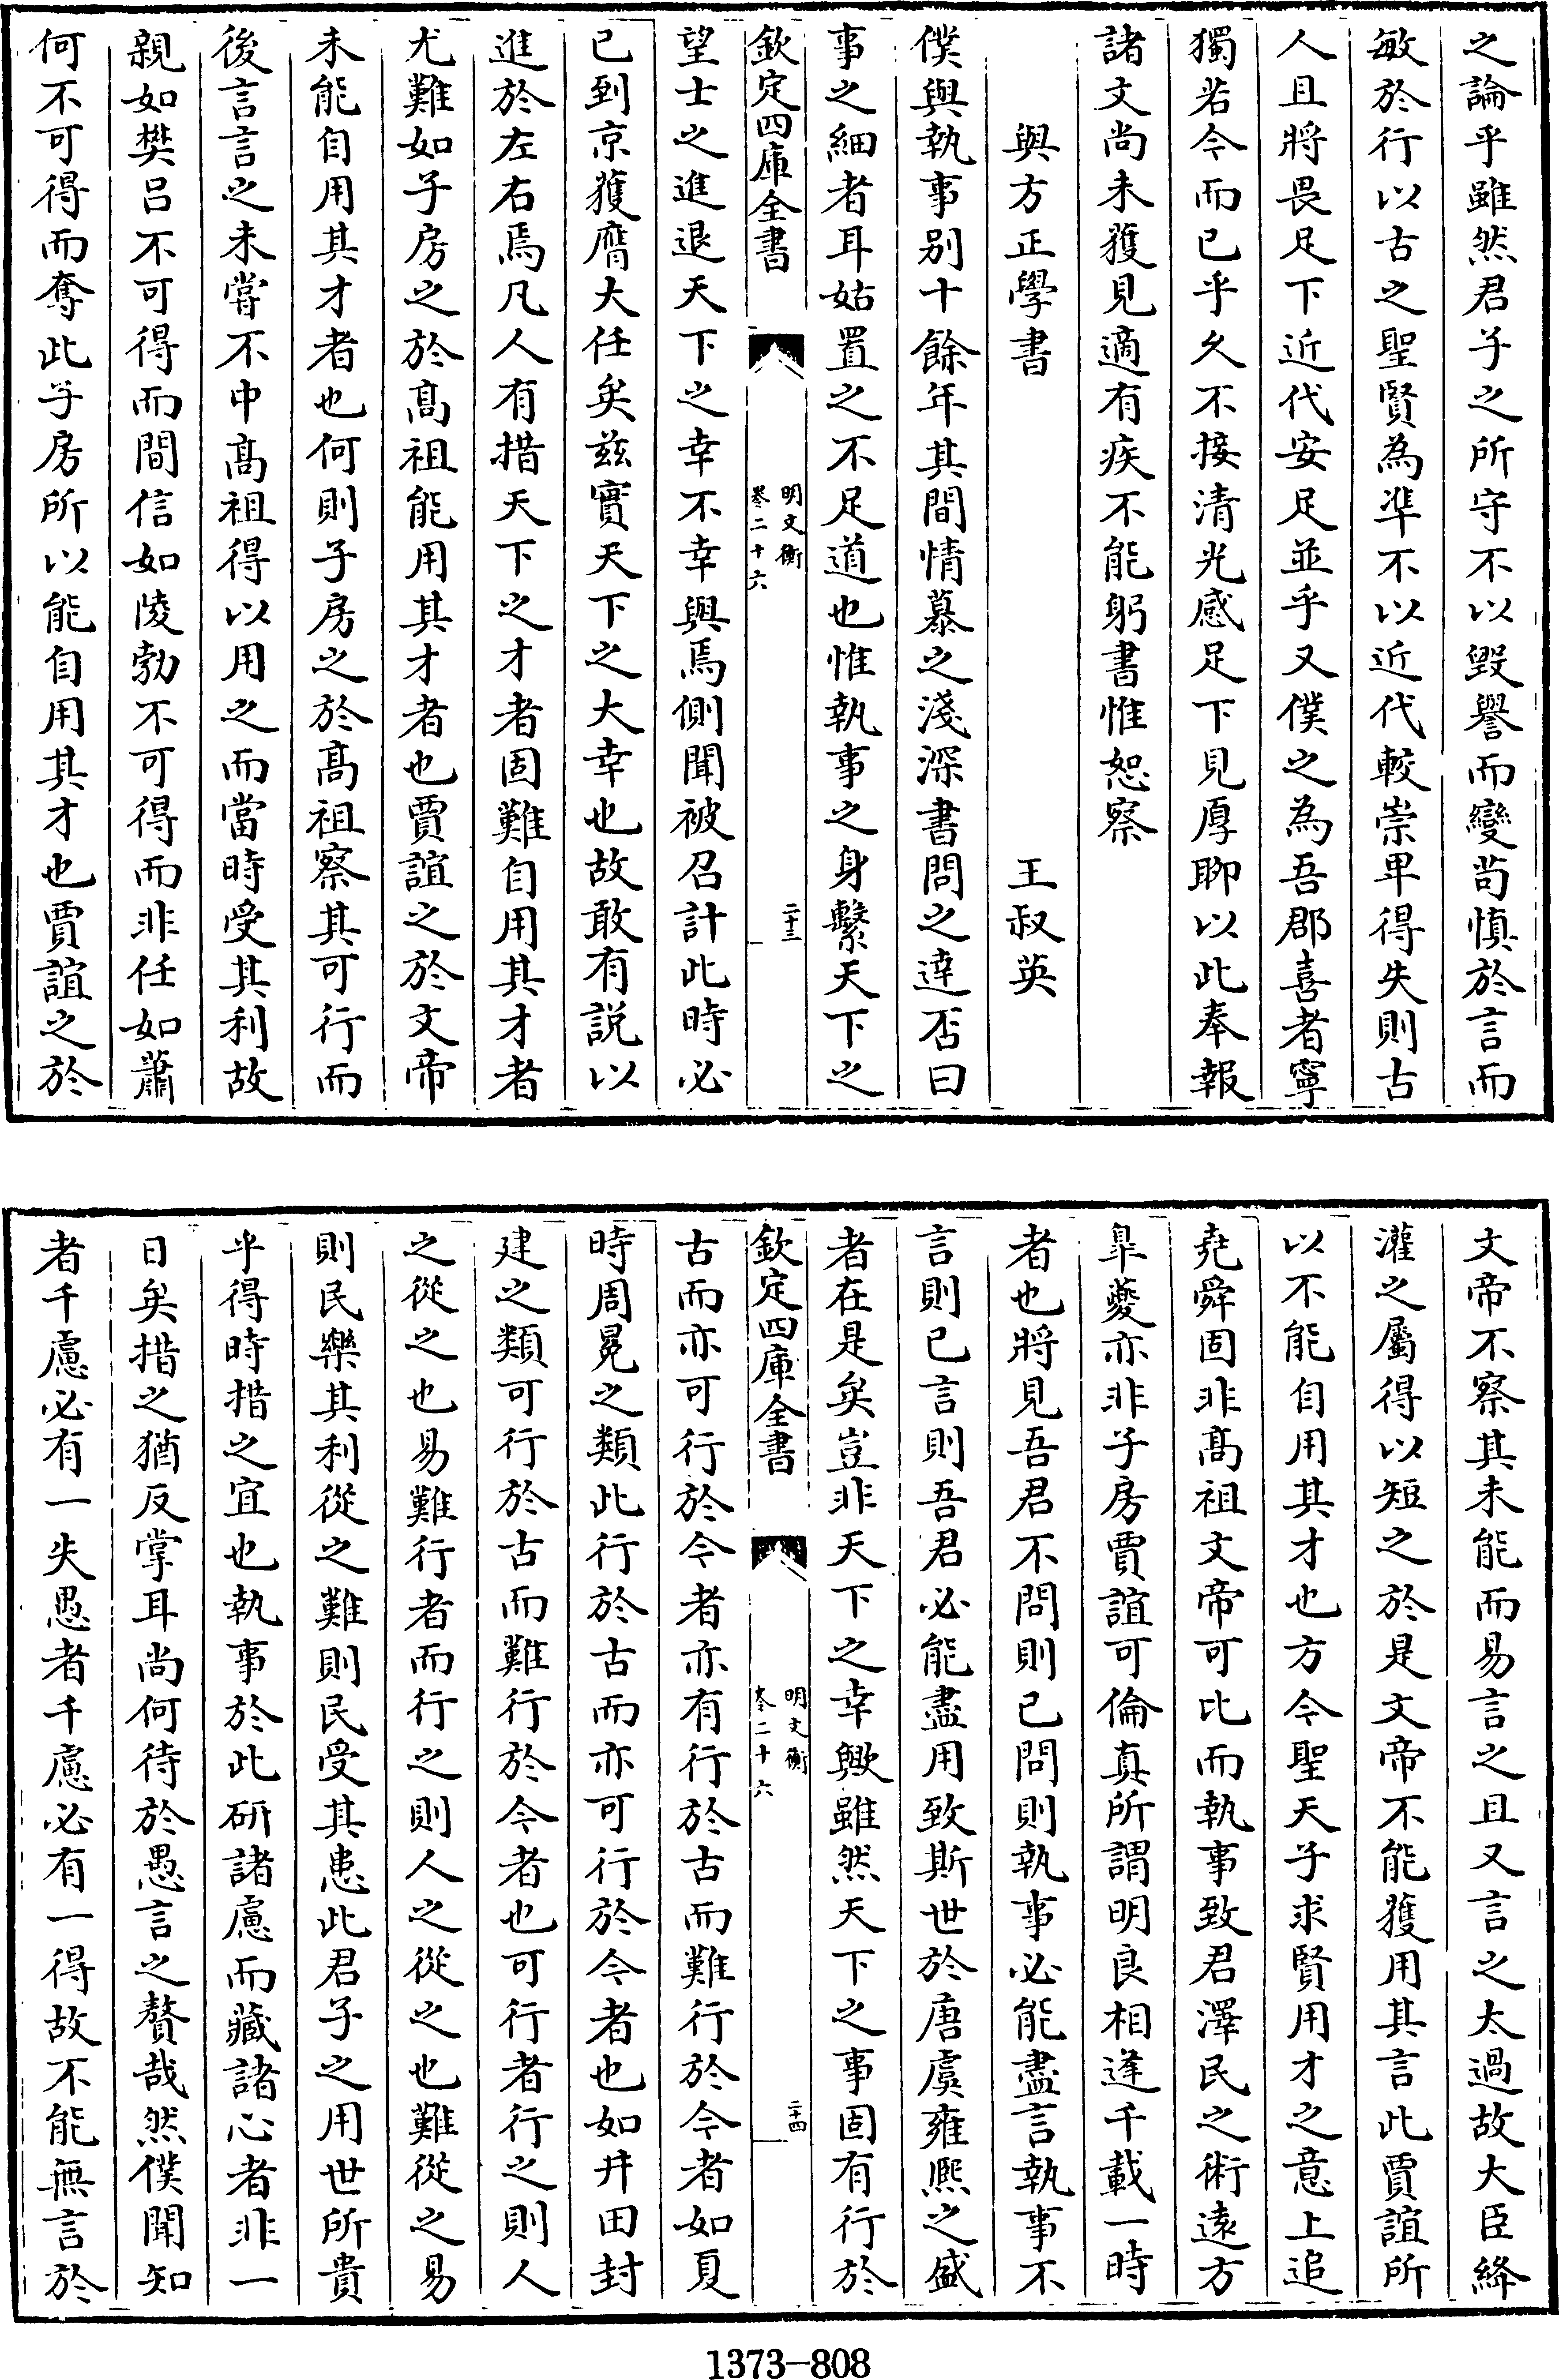 之論乎雖然君子之所守不以毀譽而變尚慎於言而
敏於行以古之聖賢為準不以近代較崇卑得失則古
人且將畏足下近代安足並乎又僕之為吾郡喜者寧
獨若今而已乎久不接清光感足下見厚聊以此奉報
諸文尚未獲見適有疾不能躬書惟恕察
與方正學書 王叔英
僕與執事别十餘年其間情慕之淺深書問之達否曰
事之細者耳姑置之不足道也惟執事之身繫天下之
欽定四庫全書 明文衡 卷二十六 二十三
望士之進退天下之幸不幸與焉側聞被召計此時必
已到京獲膺大任矣兹實天下之大幸也故敢有説以
進於左右焉凡人有措天下之才者固難自用其才者
尤難如子房之於髙祖能用其才者也賈誼之於文帝
未能自用其才者也何則子房之於髙祖察其可行而
後言言之未嘗不中髙祖得以用之而當時受其利故
親如樊吕不可得而間信如陵勃不可得而非任如蕭
何不可得而奪此子房所以能自用其才也賈誼之於
文帝不察其未能而易言之且又言之太過故大臣絳
灌之屬得以短之於是文帝不能獲用其言此賈誼所
以不能自用其才也方今聖天子求賢用才之意上追
堯舜固非髙祖文帝可比而執事致君澤民之術遠方
臯夔亦非子房賈誼可倫真所謂明良相逢千載一時
者也將見吾君不問則已問則執事必能盡言執事不
言則已言則吾君必能盡用致斯世於唐虞雍熙之盛
者在是矣豈非天下之幸歟雖然天下之事固有行於
欽定四庫全書 明文衡 卷二十六 二十四
古而亦可行於今者亦有行於古而難行於今者如夏
時周冕之類此行於古而亦可行於今者也如井田封
建之類可行於古而難行於今者也可行者行之則人
之從之也易難行者而行之則人之從之也難從之易
則民樂其利從之難則民受其患此君子之用世所貴
乎得時措之宜也執事於此研諸慮而藏諸心者非一
日矣措之猶反掌耳尚何待於愚言之贅哉然僕聞知
者千慮必有一失愚者千慮必有一得故不能無言於
1373—808